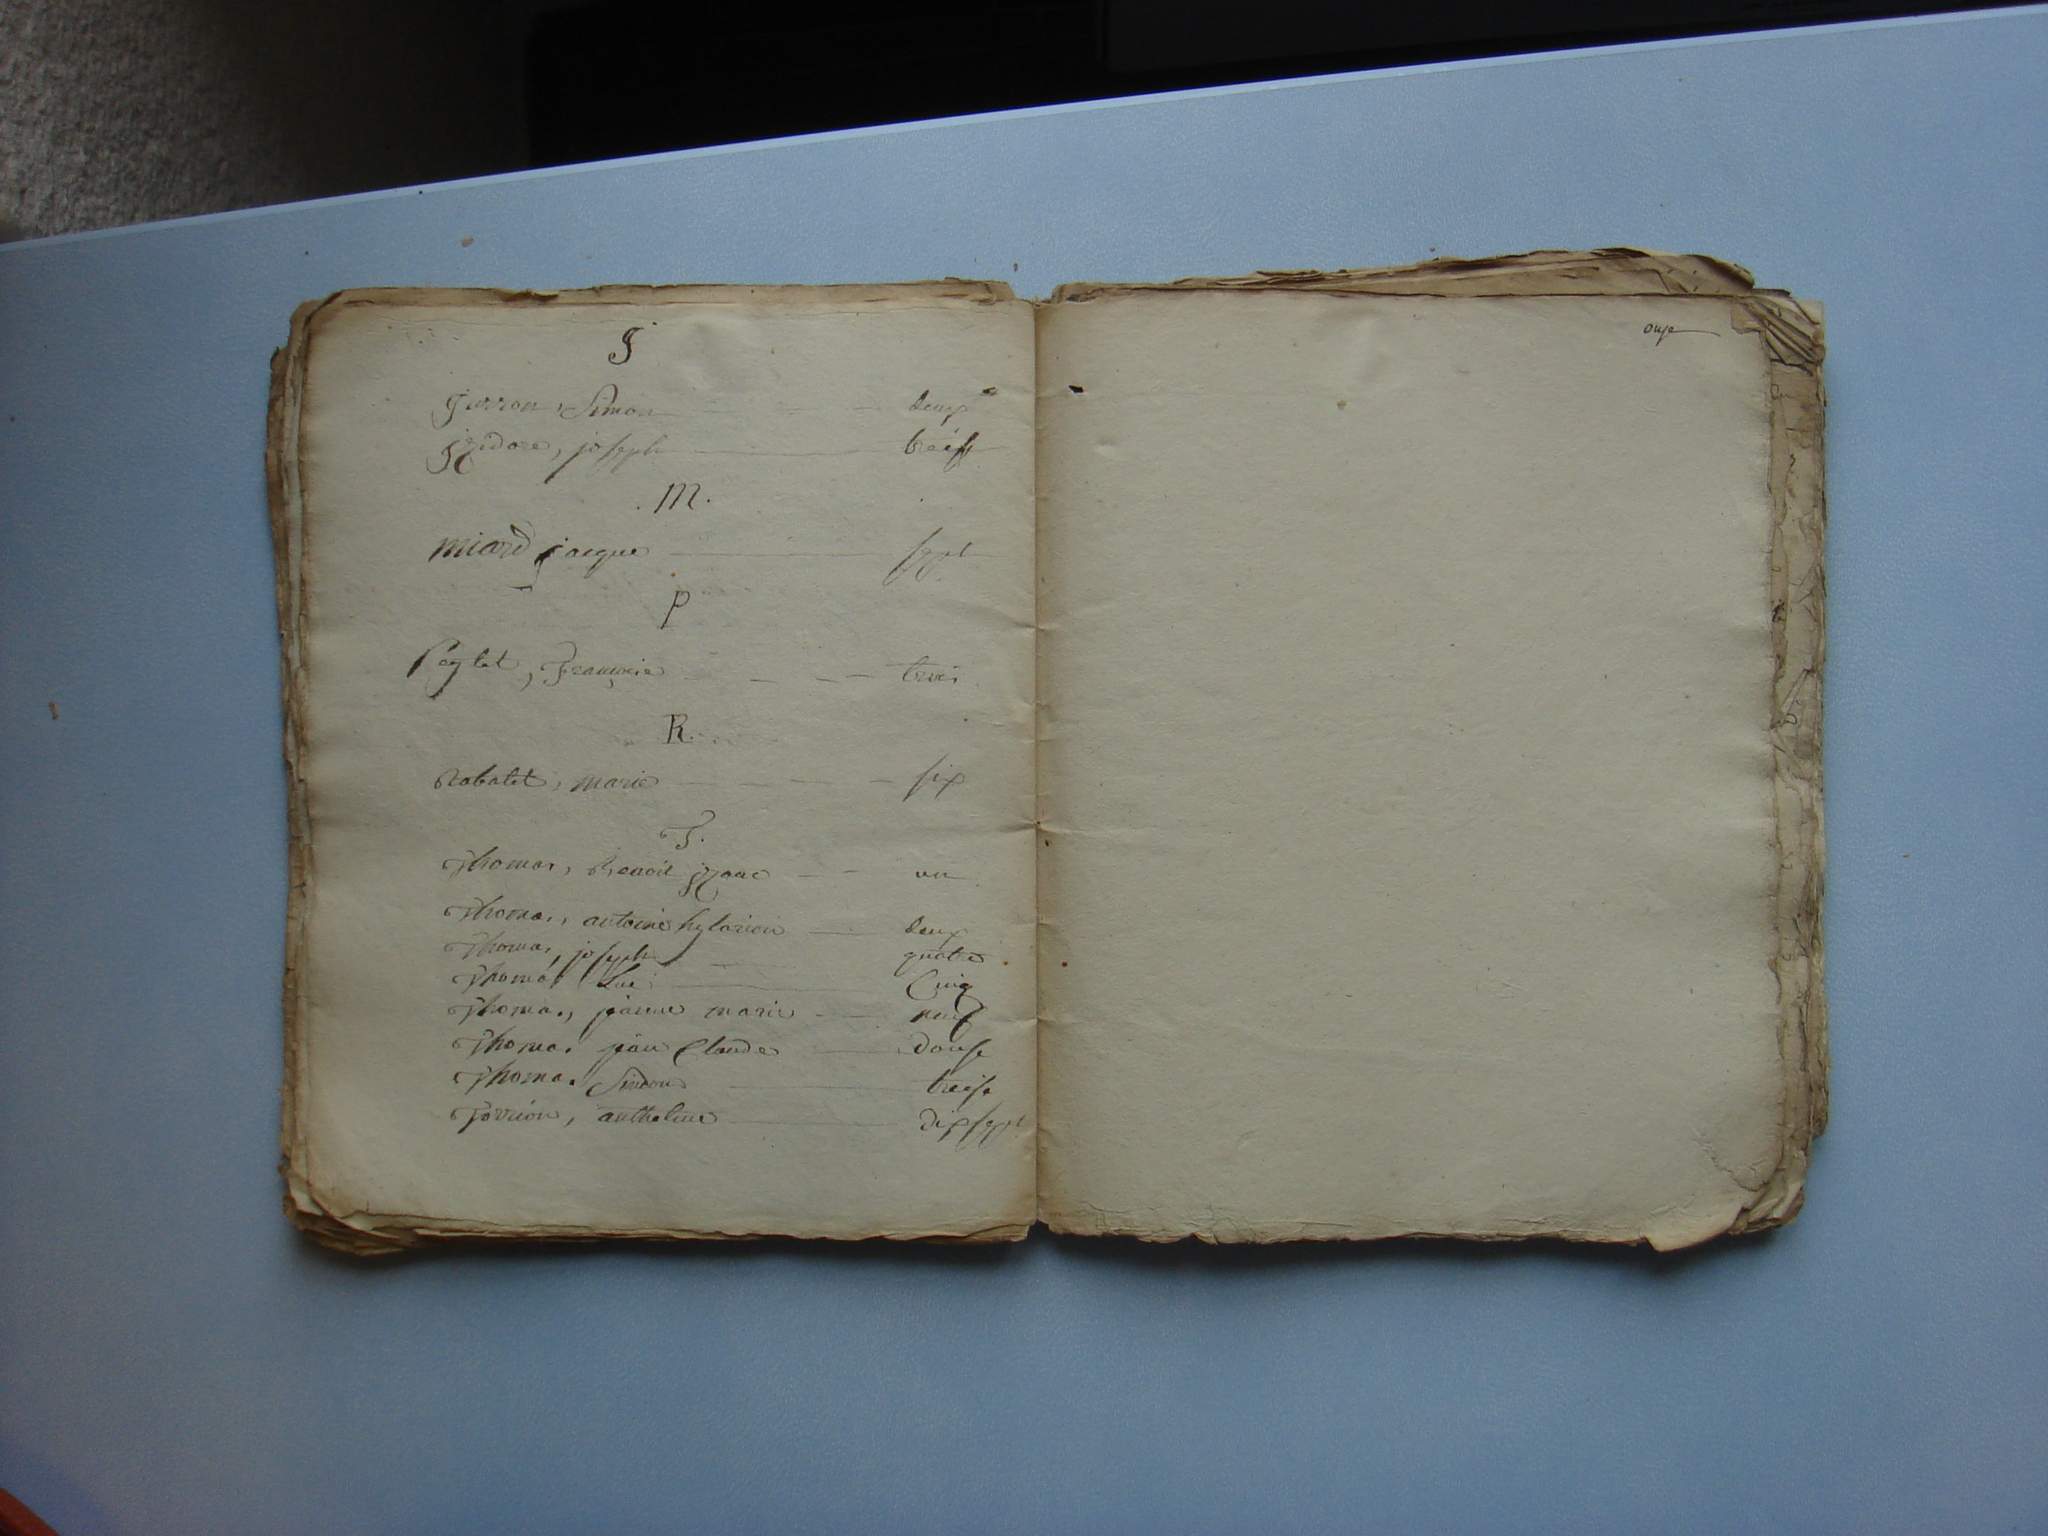 J
jurron, Simon deux
jzidore, joseph treise
.M.
Miard jacque sept
P
Péylet, Françoise trois
R.
Rabatet, marie six
T.
Thomas, Benoit jzaac un
Thomas, antoine hylarion deux
Thomas, joseph quatre
Thomas Luc Cinq
Thomas, jeanne marie neuf
Thomas jean Claude Douse
Thomas Simon treise
antheline Dix sept
onze